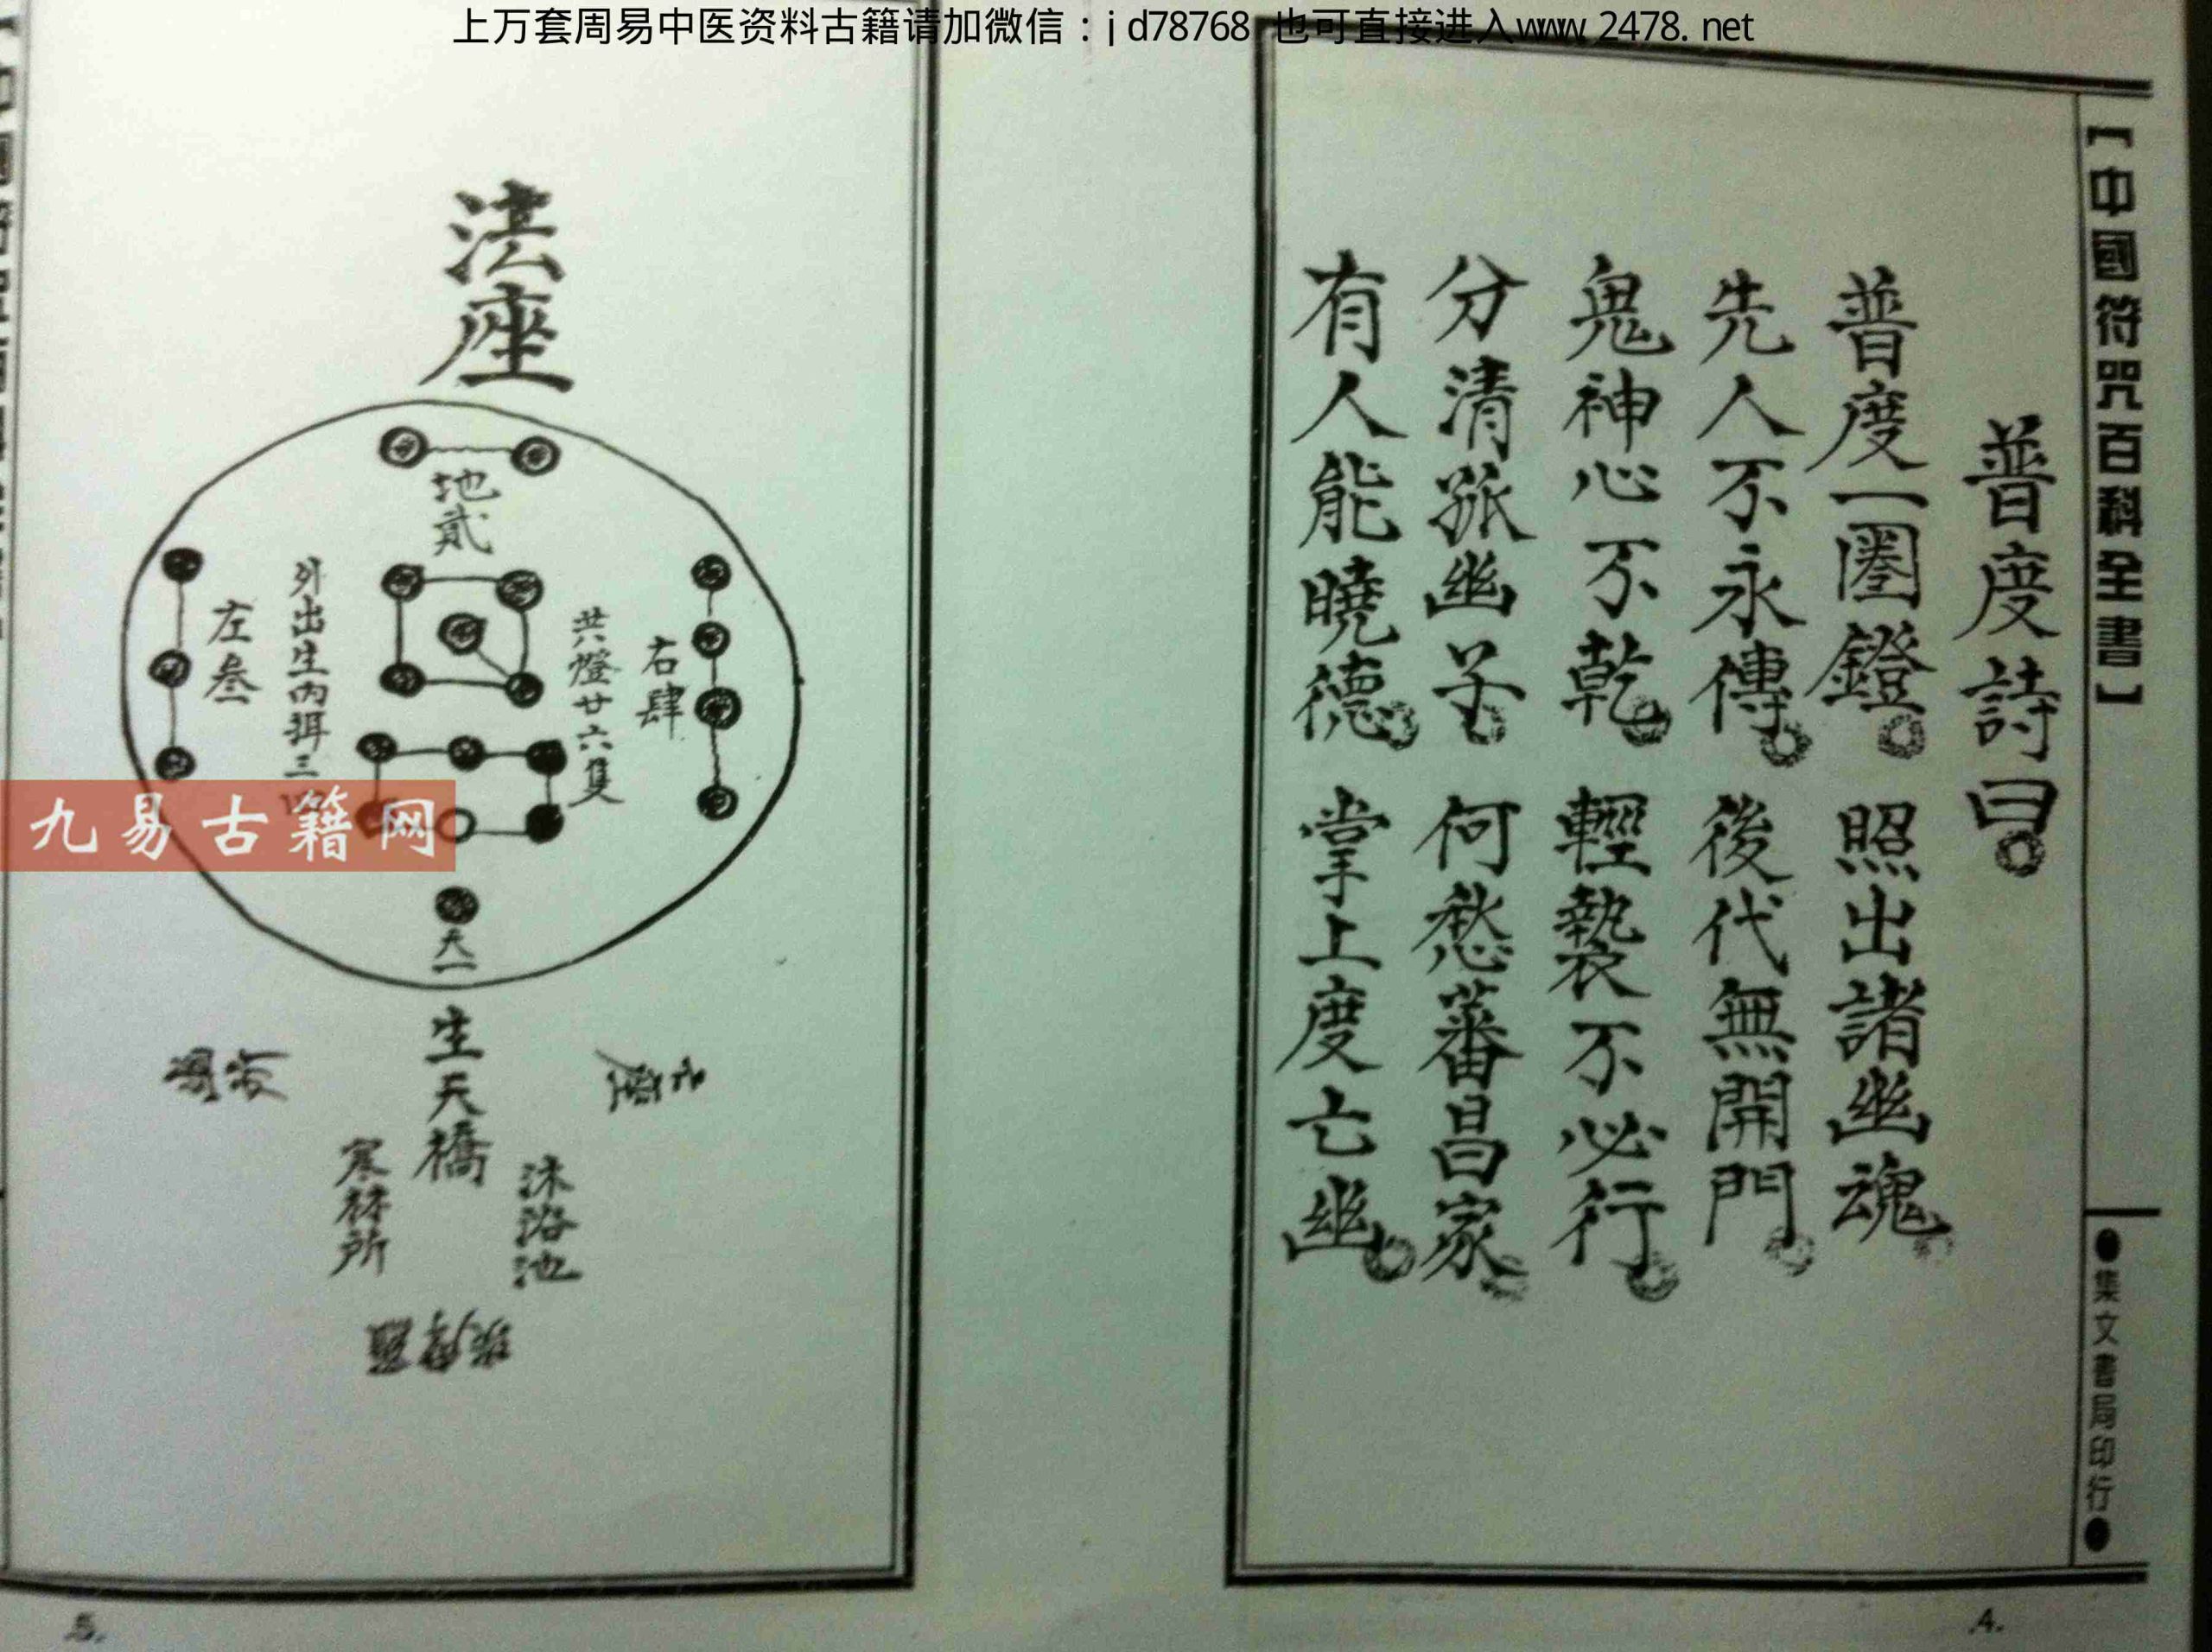 上万套周易中医资料古籍请加微信：jd78768 也可直接进入www.2478.net
【中國符咒百科全書】
●集文書局印行●
普度詩曰
普度一圈鐙 照出諸幽魂
先人不永傳 後代無開門
鬼神心不乾 輕褻不必行
分清孤幽子 何愁蕃昌家
有人能曉德 掌上度亡幽
4.
法座
地貳
右肆
共燈廿六隻
外出生內弭三
左叁
天一
生天橋
沐浴池
寒林所
九易古籍网
5.